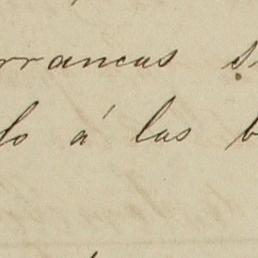 rrancas s
do á las b